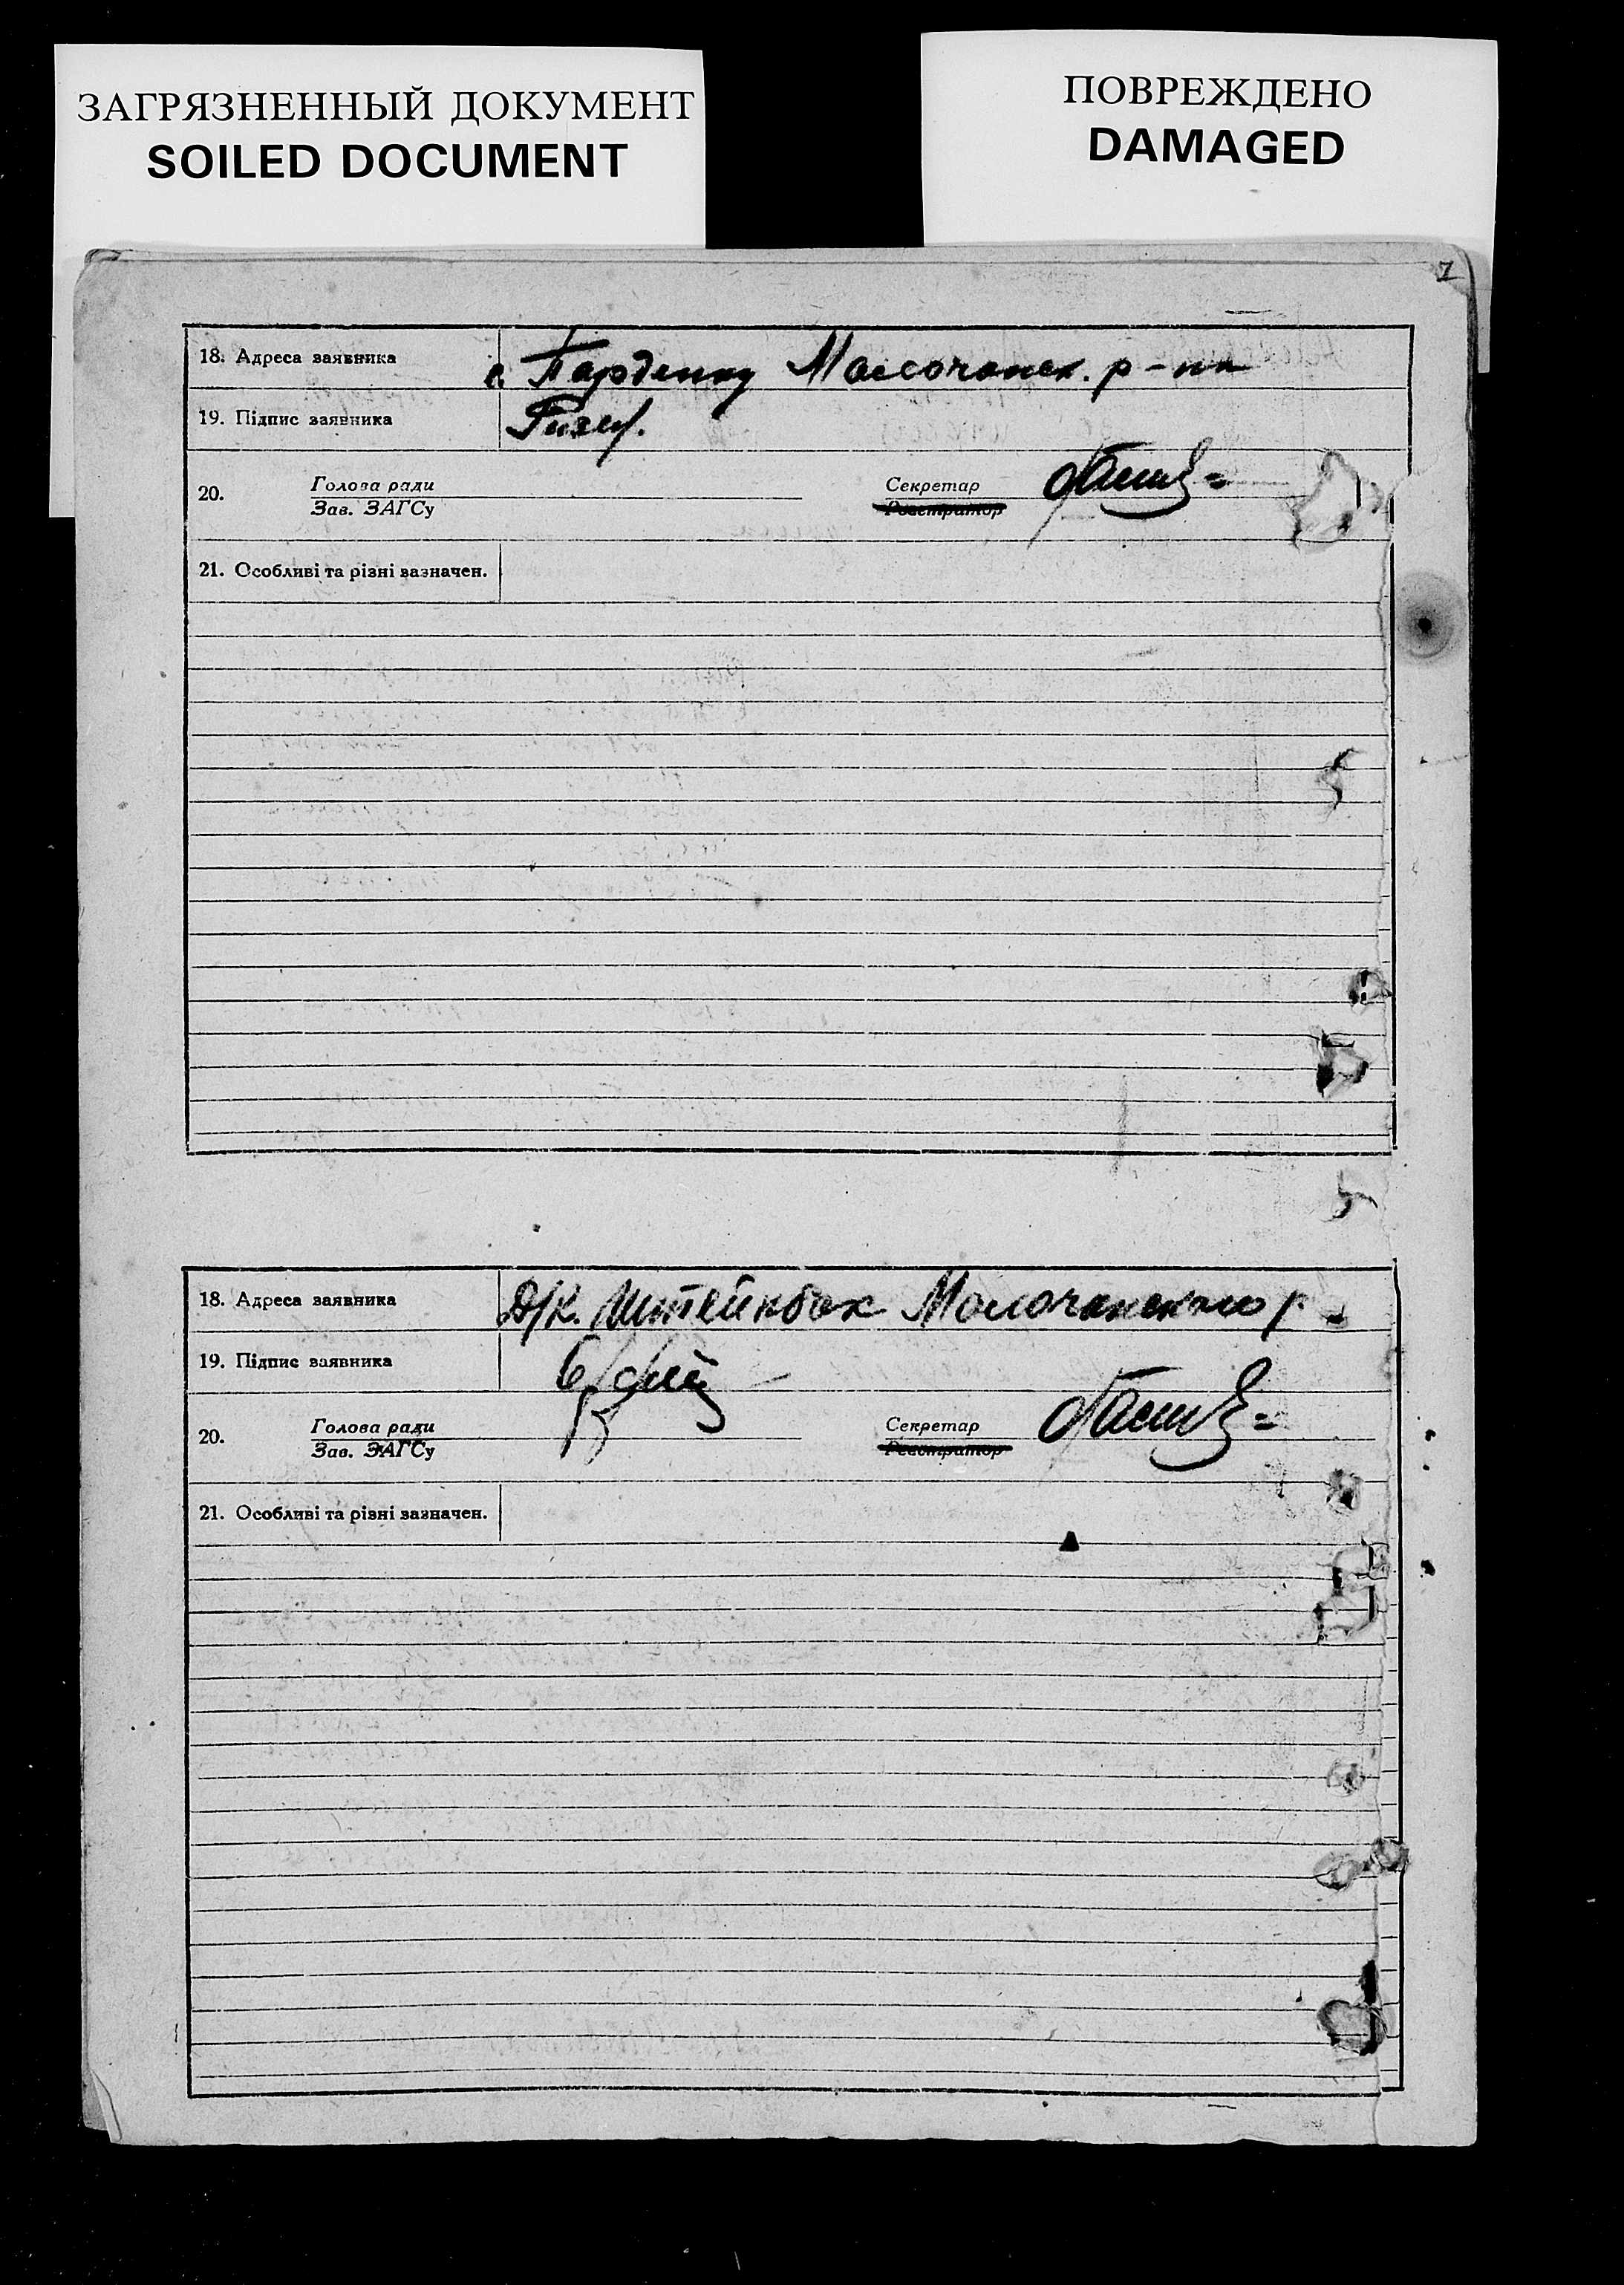 ЗАГРЯЗНЕННЫЙ ДОКУМЕНТ
SOILED DOCUMENT
ПОВРЕЖДЕНО
DAMAGED
7
18. Адреса заявника с. Молочанск. р-на
19. Підпис заявника
20. Голова ради Секретар
Зав. ЗАГСу Реєстратор
21. Особливі та різні зазначен.
18. Адреса заявника Д/к. Штейнбах Молочанского р
19. Підпис заявника
20. Голова ради Секретар
Зав. ЗАГСу Реєстратор
21. Особливі та різні зазначен.